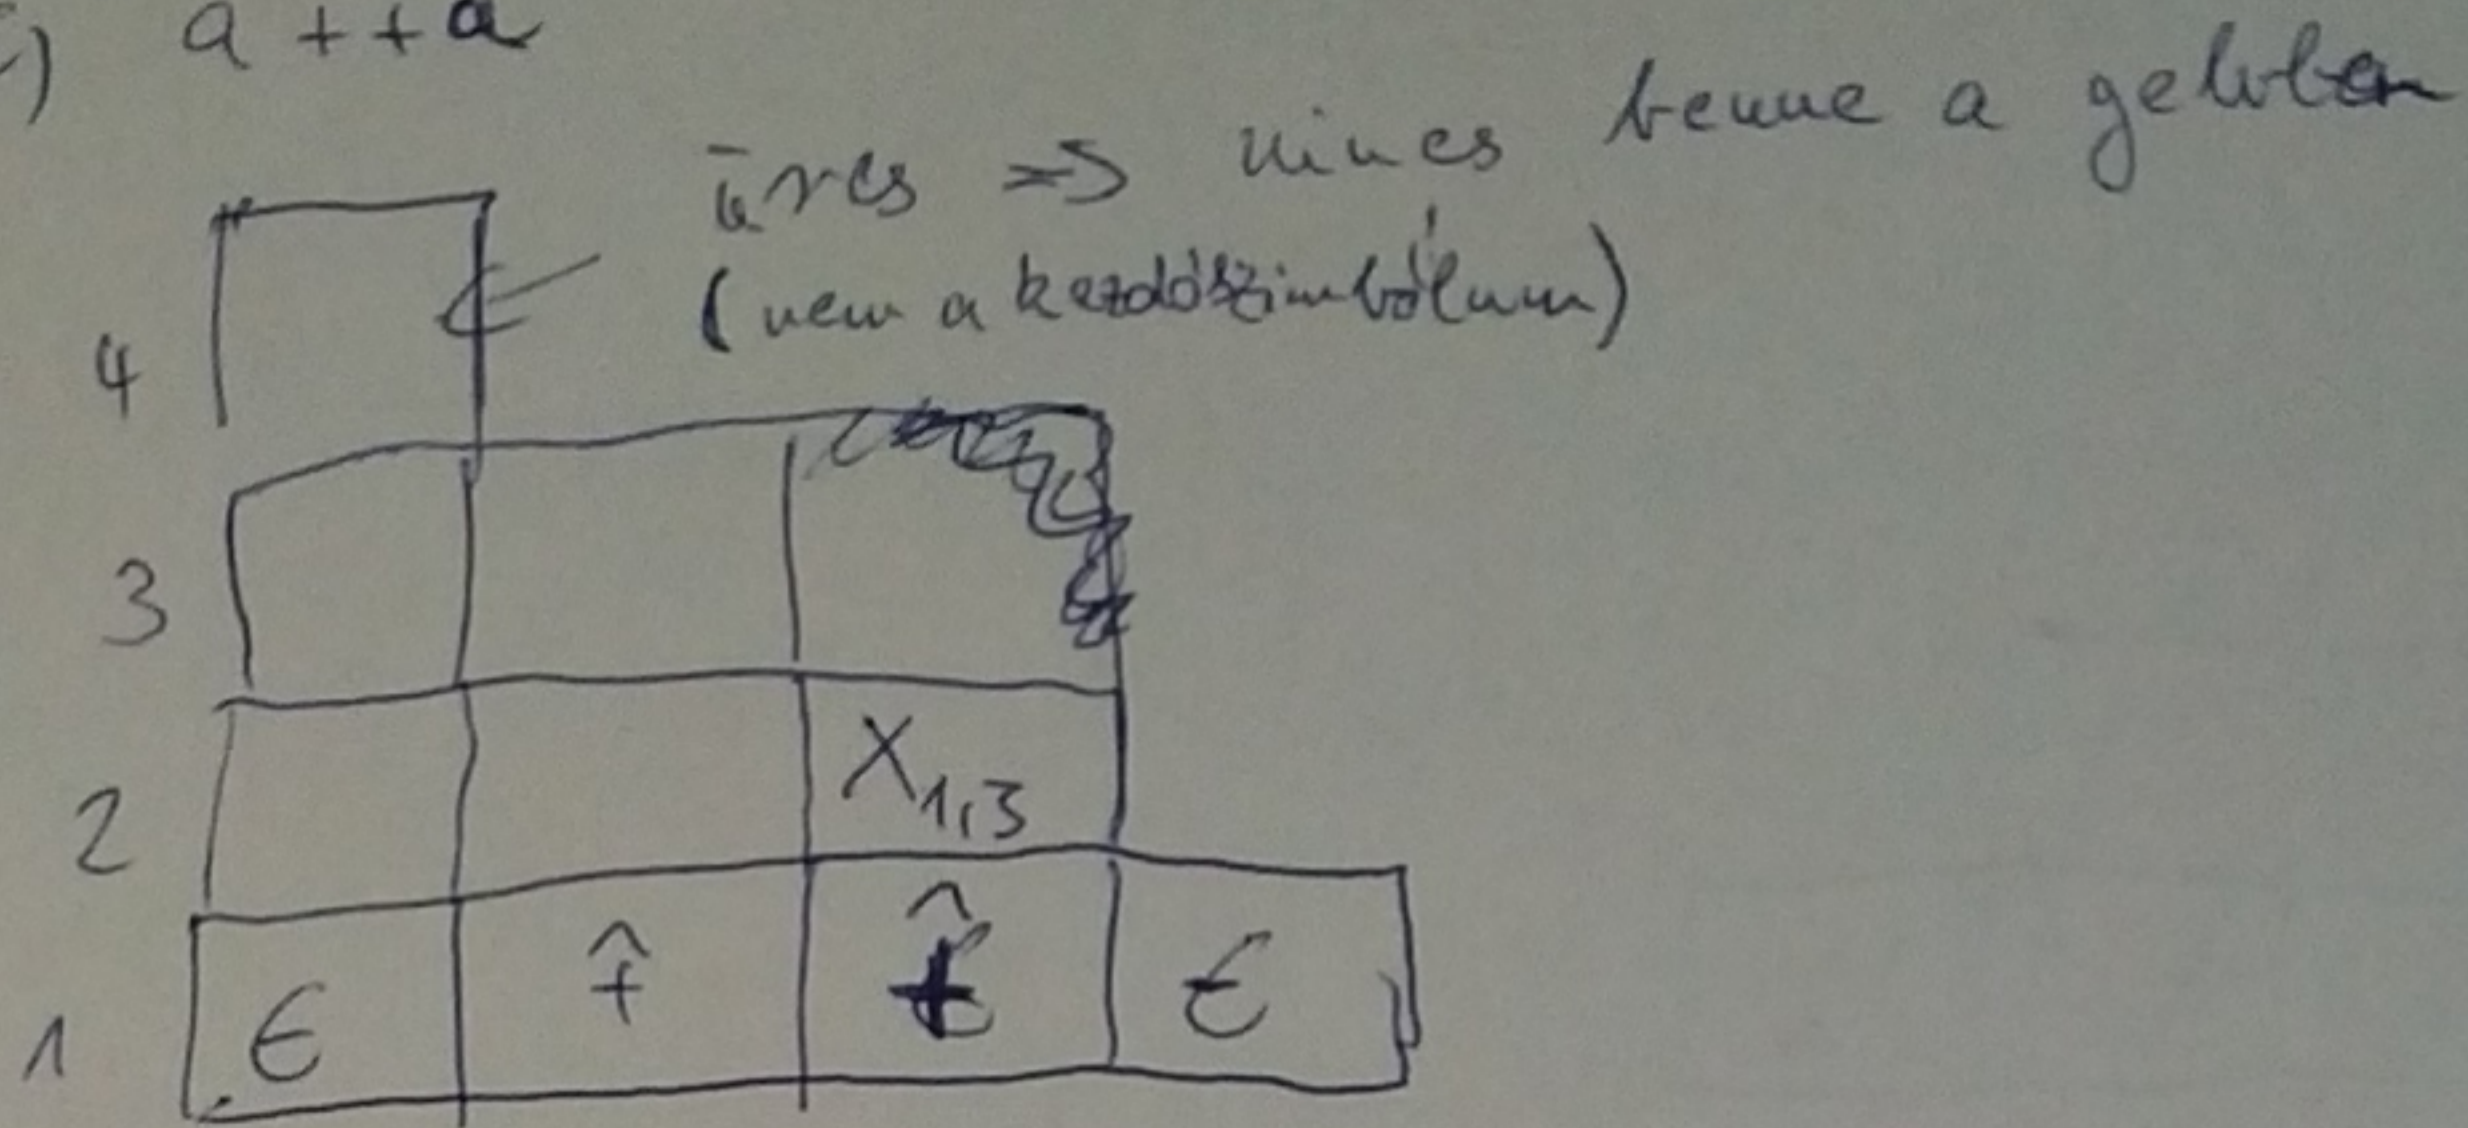 c) a + + a
üres => nincs benne a gelben
(nem a kezdőszimbólum)
4
3
2 X₁,₃
1 E +̂ +̂ E